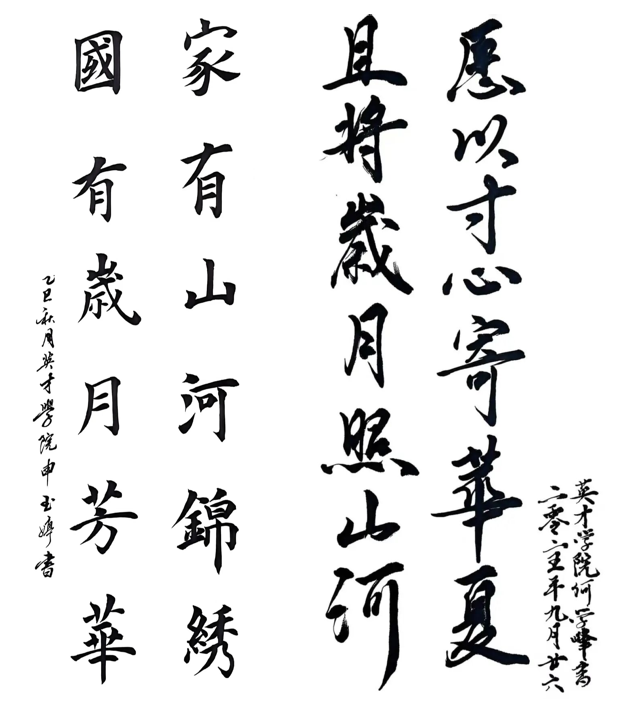 愿以寸心寄華夏
且将歲月照山河
英才学院何学峰書
二零二五年九月廿六
家有山河錦绣
國有歲月芳華
乙巳秋月英才學院申玉婷書